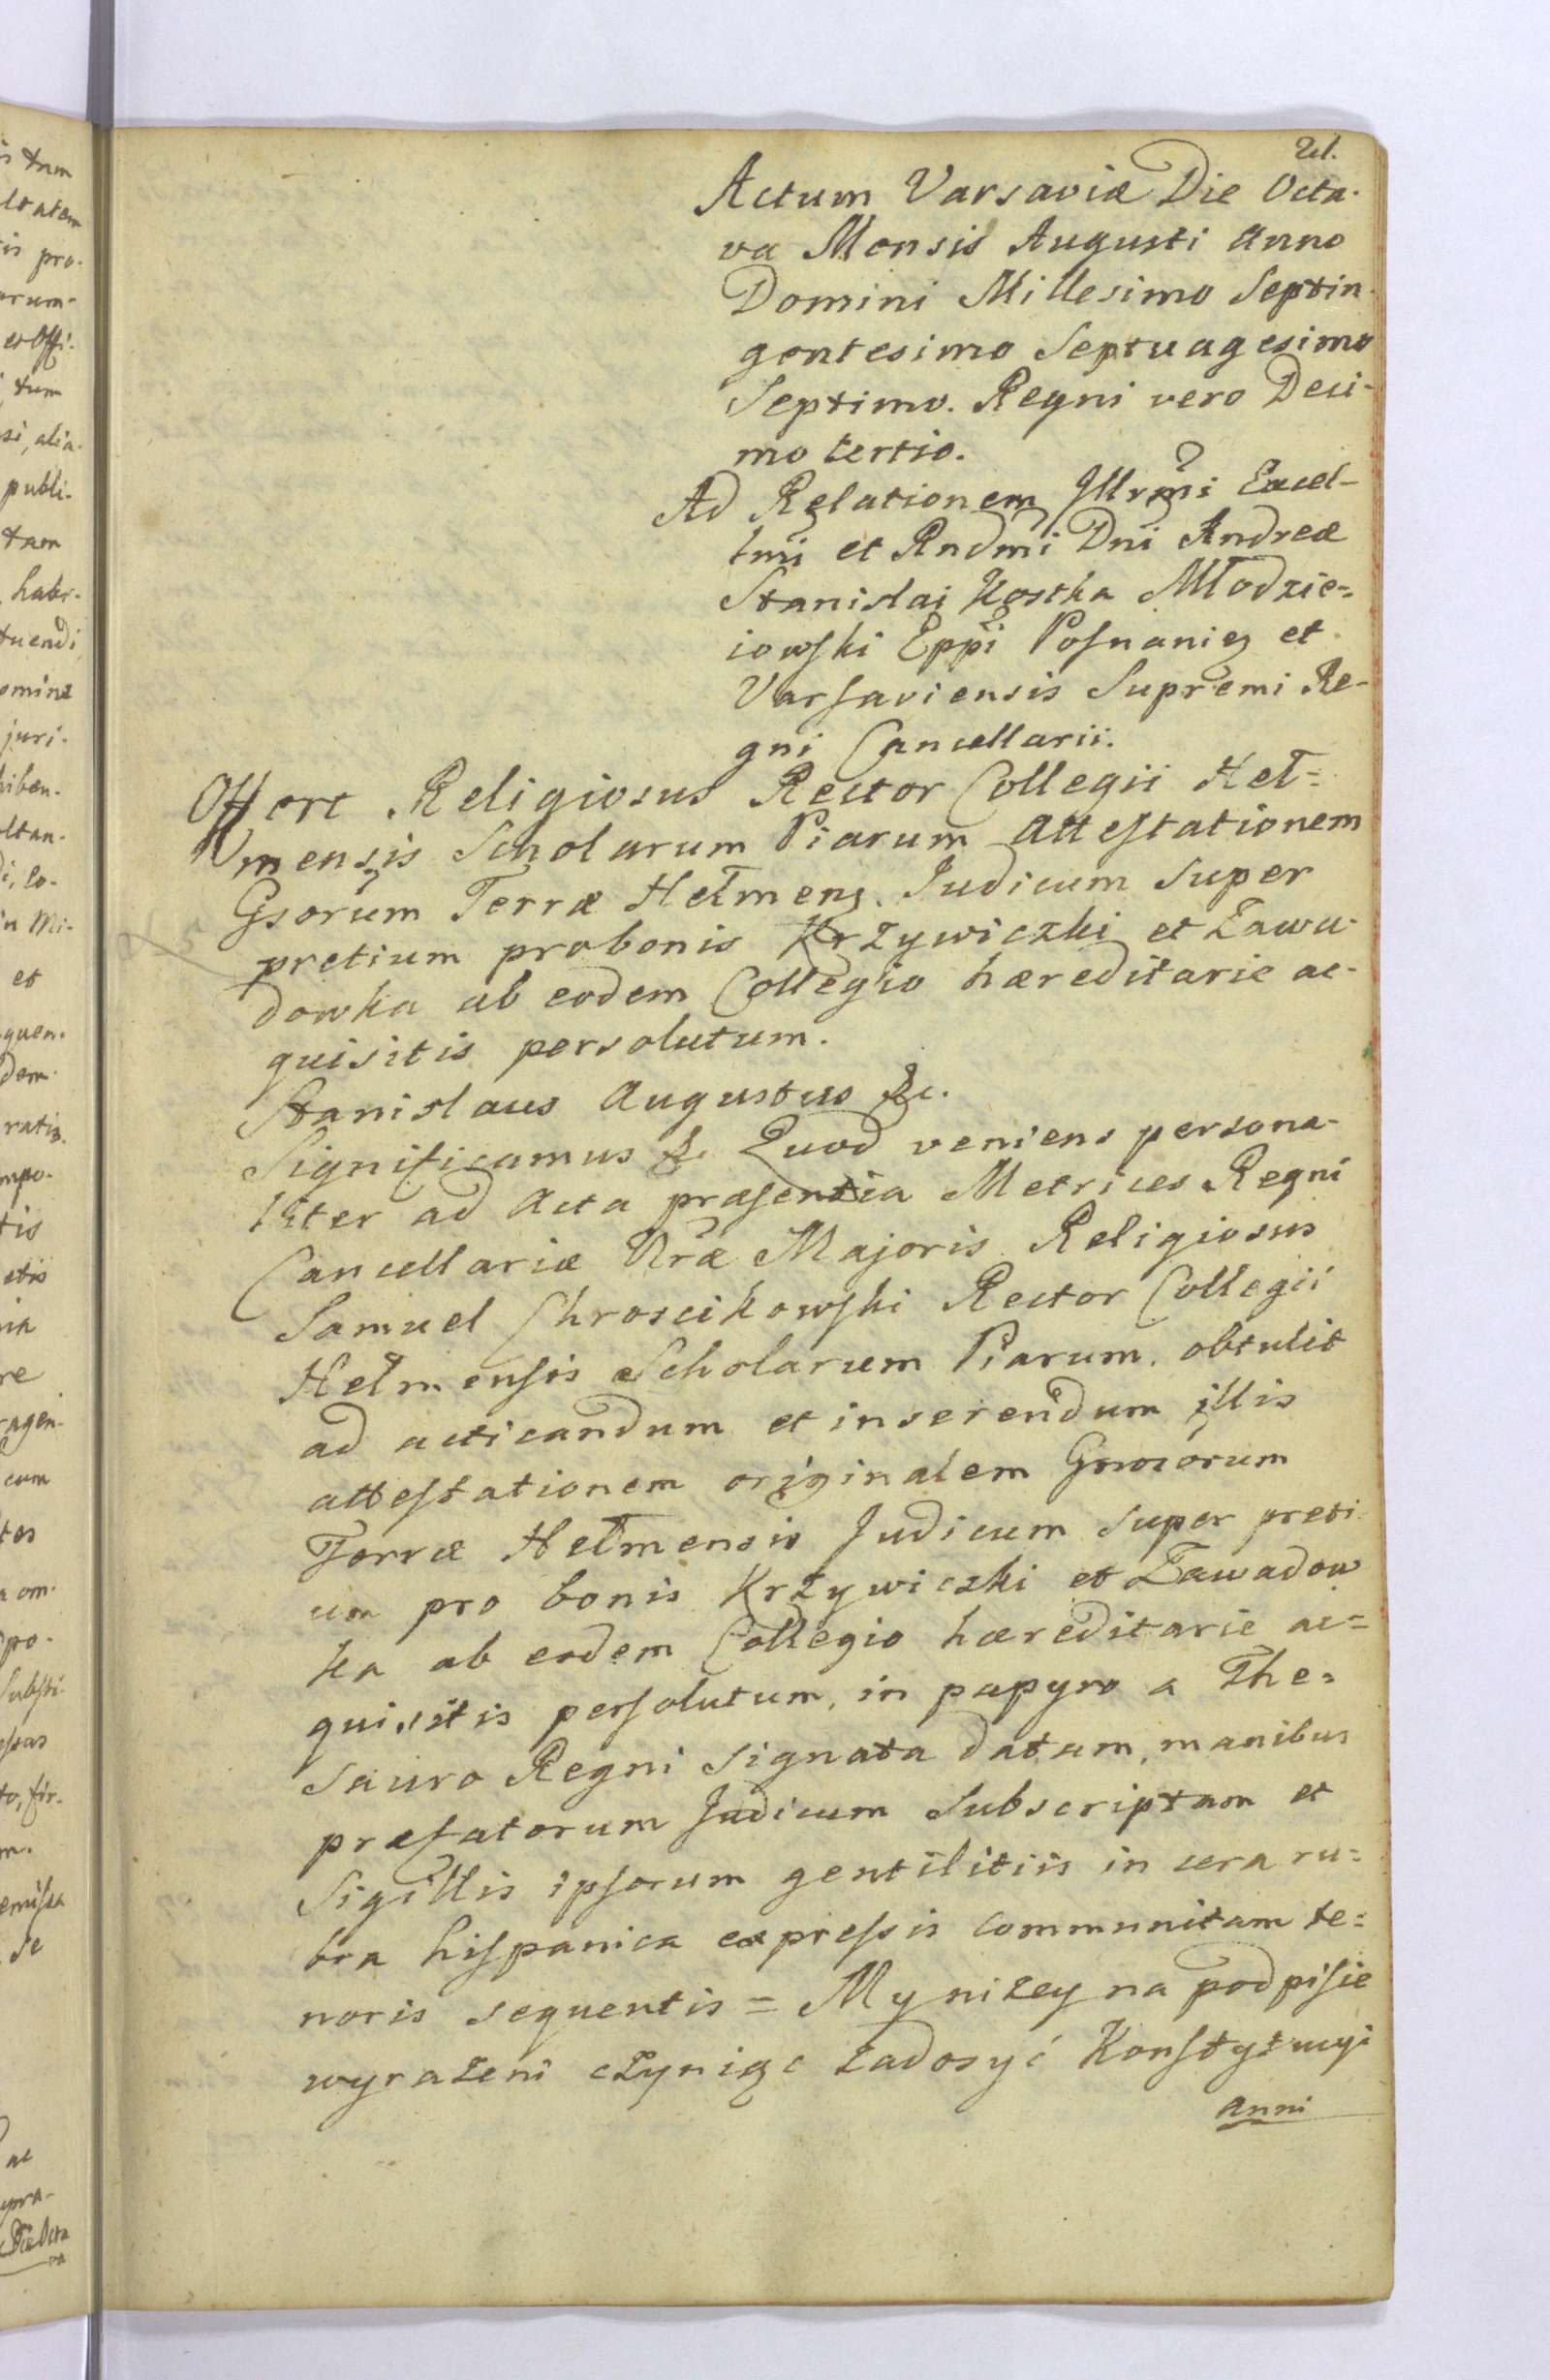 21.
Actum Varsaviæ Die Octa-
va Mensis Augusti Anno
Domini Millesimo Septin-
gentesimo Septuagesimo
Septimo. Regni vero Deci-
mo tertio.
Ad Relationem Illrmi Excel-
lmi et Rndmi Dni Andreæ
Stanislai Kostka Młodzie=
iowski Eppi Posnanien et
Varsaviensis Supremi Re-
gni Cancellarii.
Offert Religiosus Rector Collegii Heł=
mensis Scholarum Piarum Attestationem
Gsorum Terræ Hełmens. Judicum Super
pretium pro bonis Krzywiczki et Zawa-
dowka ab eodem Collegio hæreditarie ac-
quisitis persolutum.
Stanislaus Augustus &c.
Significamus &. Quod veniens persona-
liter ad Acta præsentia Metrices Regni
Cancellariæ Nræ Majoris Religiosus
Samuel Chroscikowski Rector Collegii
Hełmensis Scholarum Piarum, obtulit
ad acticandum et inserendum illis
attestationem originalem Gnrosorum
Terræ Hełmensis Judicum Super preti-
um pro bonis Krzywiczki et Zawadow
ka ab eodem Collegio hæreditarie ac=
quisitis persolutum, in papyro a The=
sauro Regni Signata datam, manibus
præfatorum Judicum Subscriptam et
Sigillis ipsorum gentilitiis in cera ru=
bra hispanica expressis communitam te=
noris sequentis = My niżey na podpisie
wyrażeni czyniąc zadosyć Konstytucyi
Anni
is tum
ltatem
is pro-
arum-
et Offi-
tum
si, alia-
publi-
tam
habe-
tuendi
omine
juri-
hiben-
oltan-
di, lo-
in Mi-
et
quen-
dem
ratis
mpo-
tis
etis
re
ragen-
cum
tes
a om-
po-
substi-
to, fir-
m.
emissa
de
ac
Die Octa
va